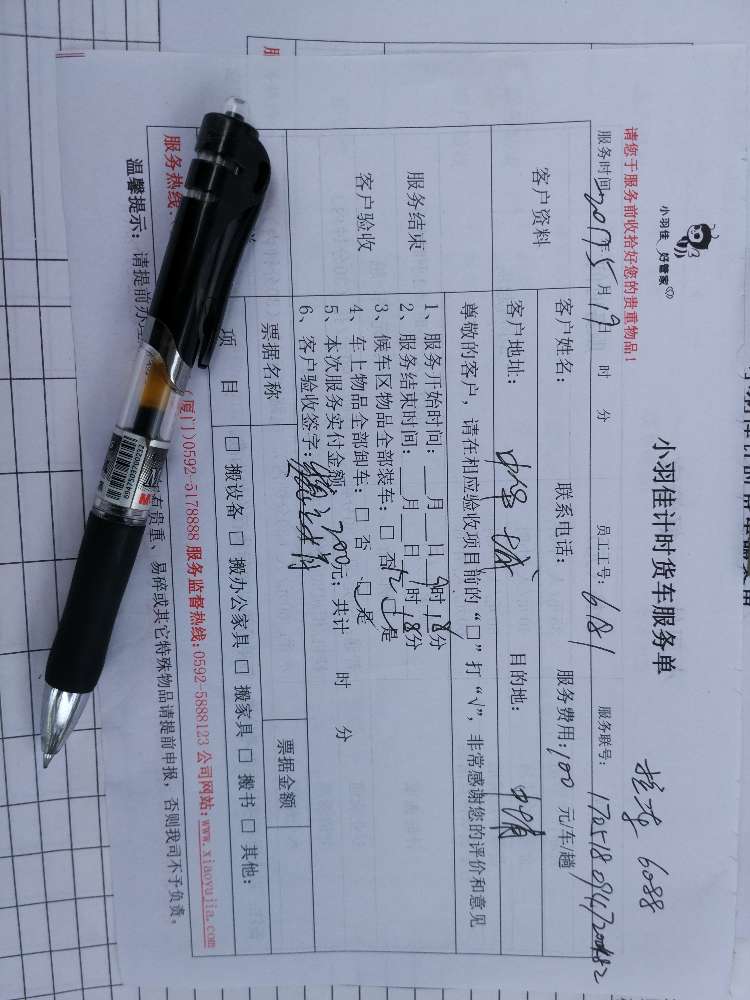 小羽佳 好管家
小羽佳计时货车服务单
6088
请您于服务前收拾好您的贵重物品!
服务时间: 2017年5月19 时 分 员工工号: 6181 服务联号:
客户资料
客户姓名: 联系电话: 服务费用:100 元/车/趟
客户地址: 目的地:
尊敬的客户，请在相应验收项目前的“□”打“√”，非常感谢您的评价和意见
服务结束
客户验收
1、服务开始时间:___月___日 时18分
2、服务结束时间:___月___日 时18分
3、候车区物品全部装车: □ 否 □ 是
4、车上物品全部卸车: □ 否 □ 是
5、本次服务实付金额 200元; 共计 时 分
6、客户验收签字:
票据名称 票据金额
项 目 □ 搬设备 □ 搬办公家具 □ 搬家具 □ 搬书 □ 其他:
服务热线: (厦门)0592-5178888 服务监督热线:0592-5888123 公司网站:www.xiaoyujia.com
温馨提示: 请提前办 有贵重、易碎或其它特殊物品请提前申报，否则我司不予负责。